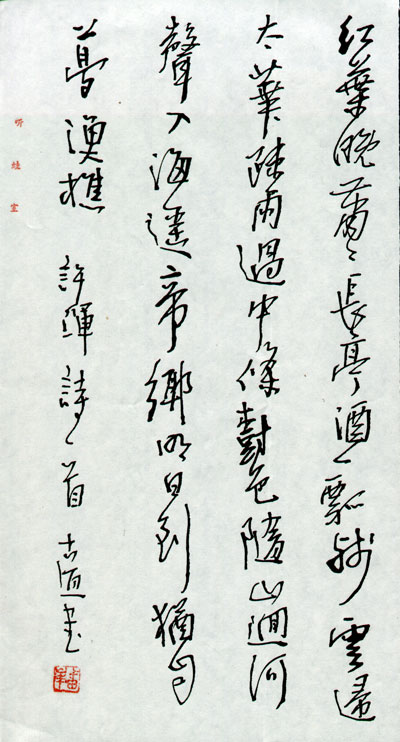 紅葉晚蕭〻長亭酒一瓢残雲歸
太華疎雨過中條樹色隨山迥河
聲入海遥帝鄉明日到猶自
夢漁樵 許渾詩一首 書